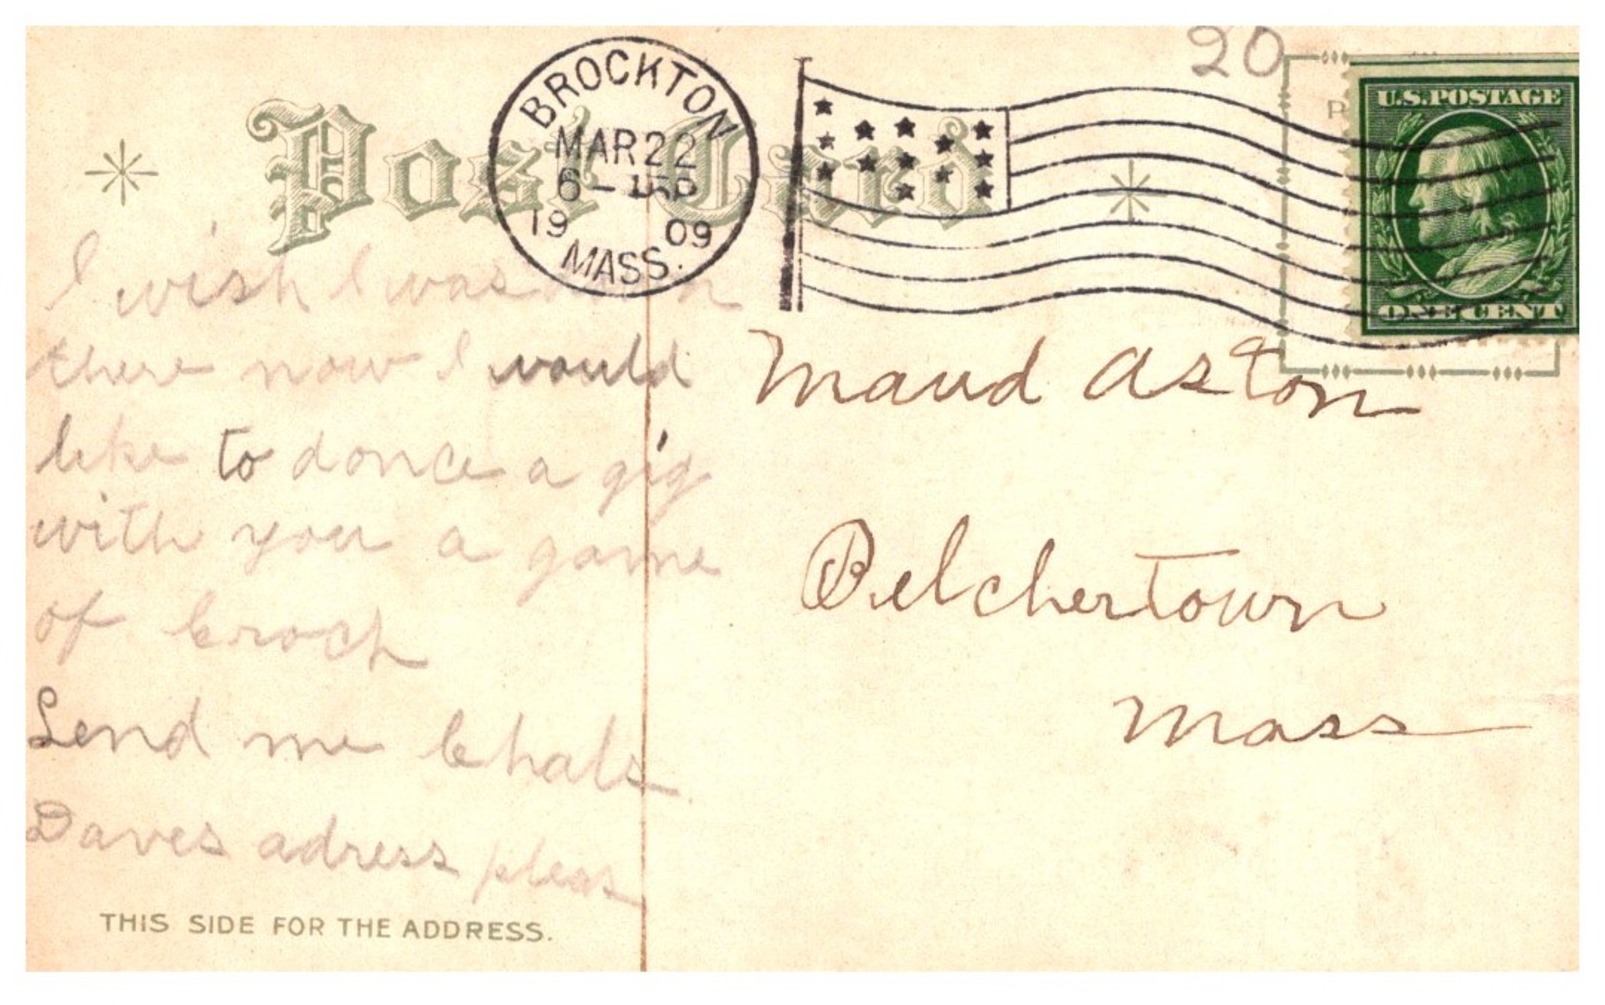 20
Post Card
BROCKTON
MAR 22
6 -
19 09
MASS.
U.S. POSTAGE
ONE CENT
P
I wish I was
there now I would
like to donce a gig
with you a game
of Croch
Send me Chals
Daves adress pleas
Maud Aston
Belchertown
Mass
THIS SIDE FOR THE ADDRESS.